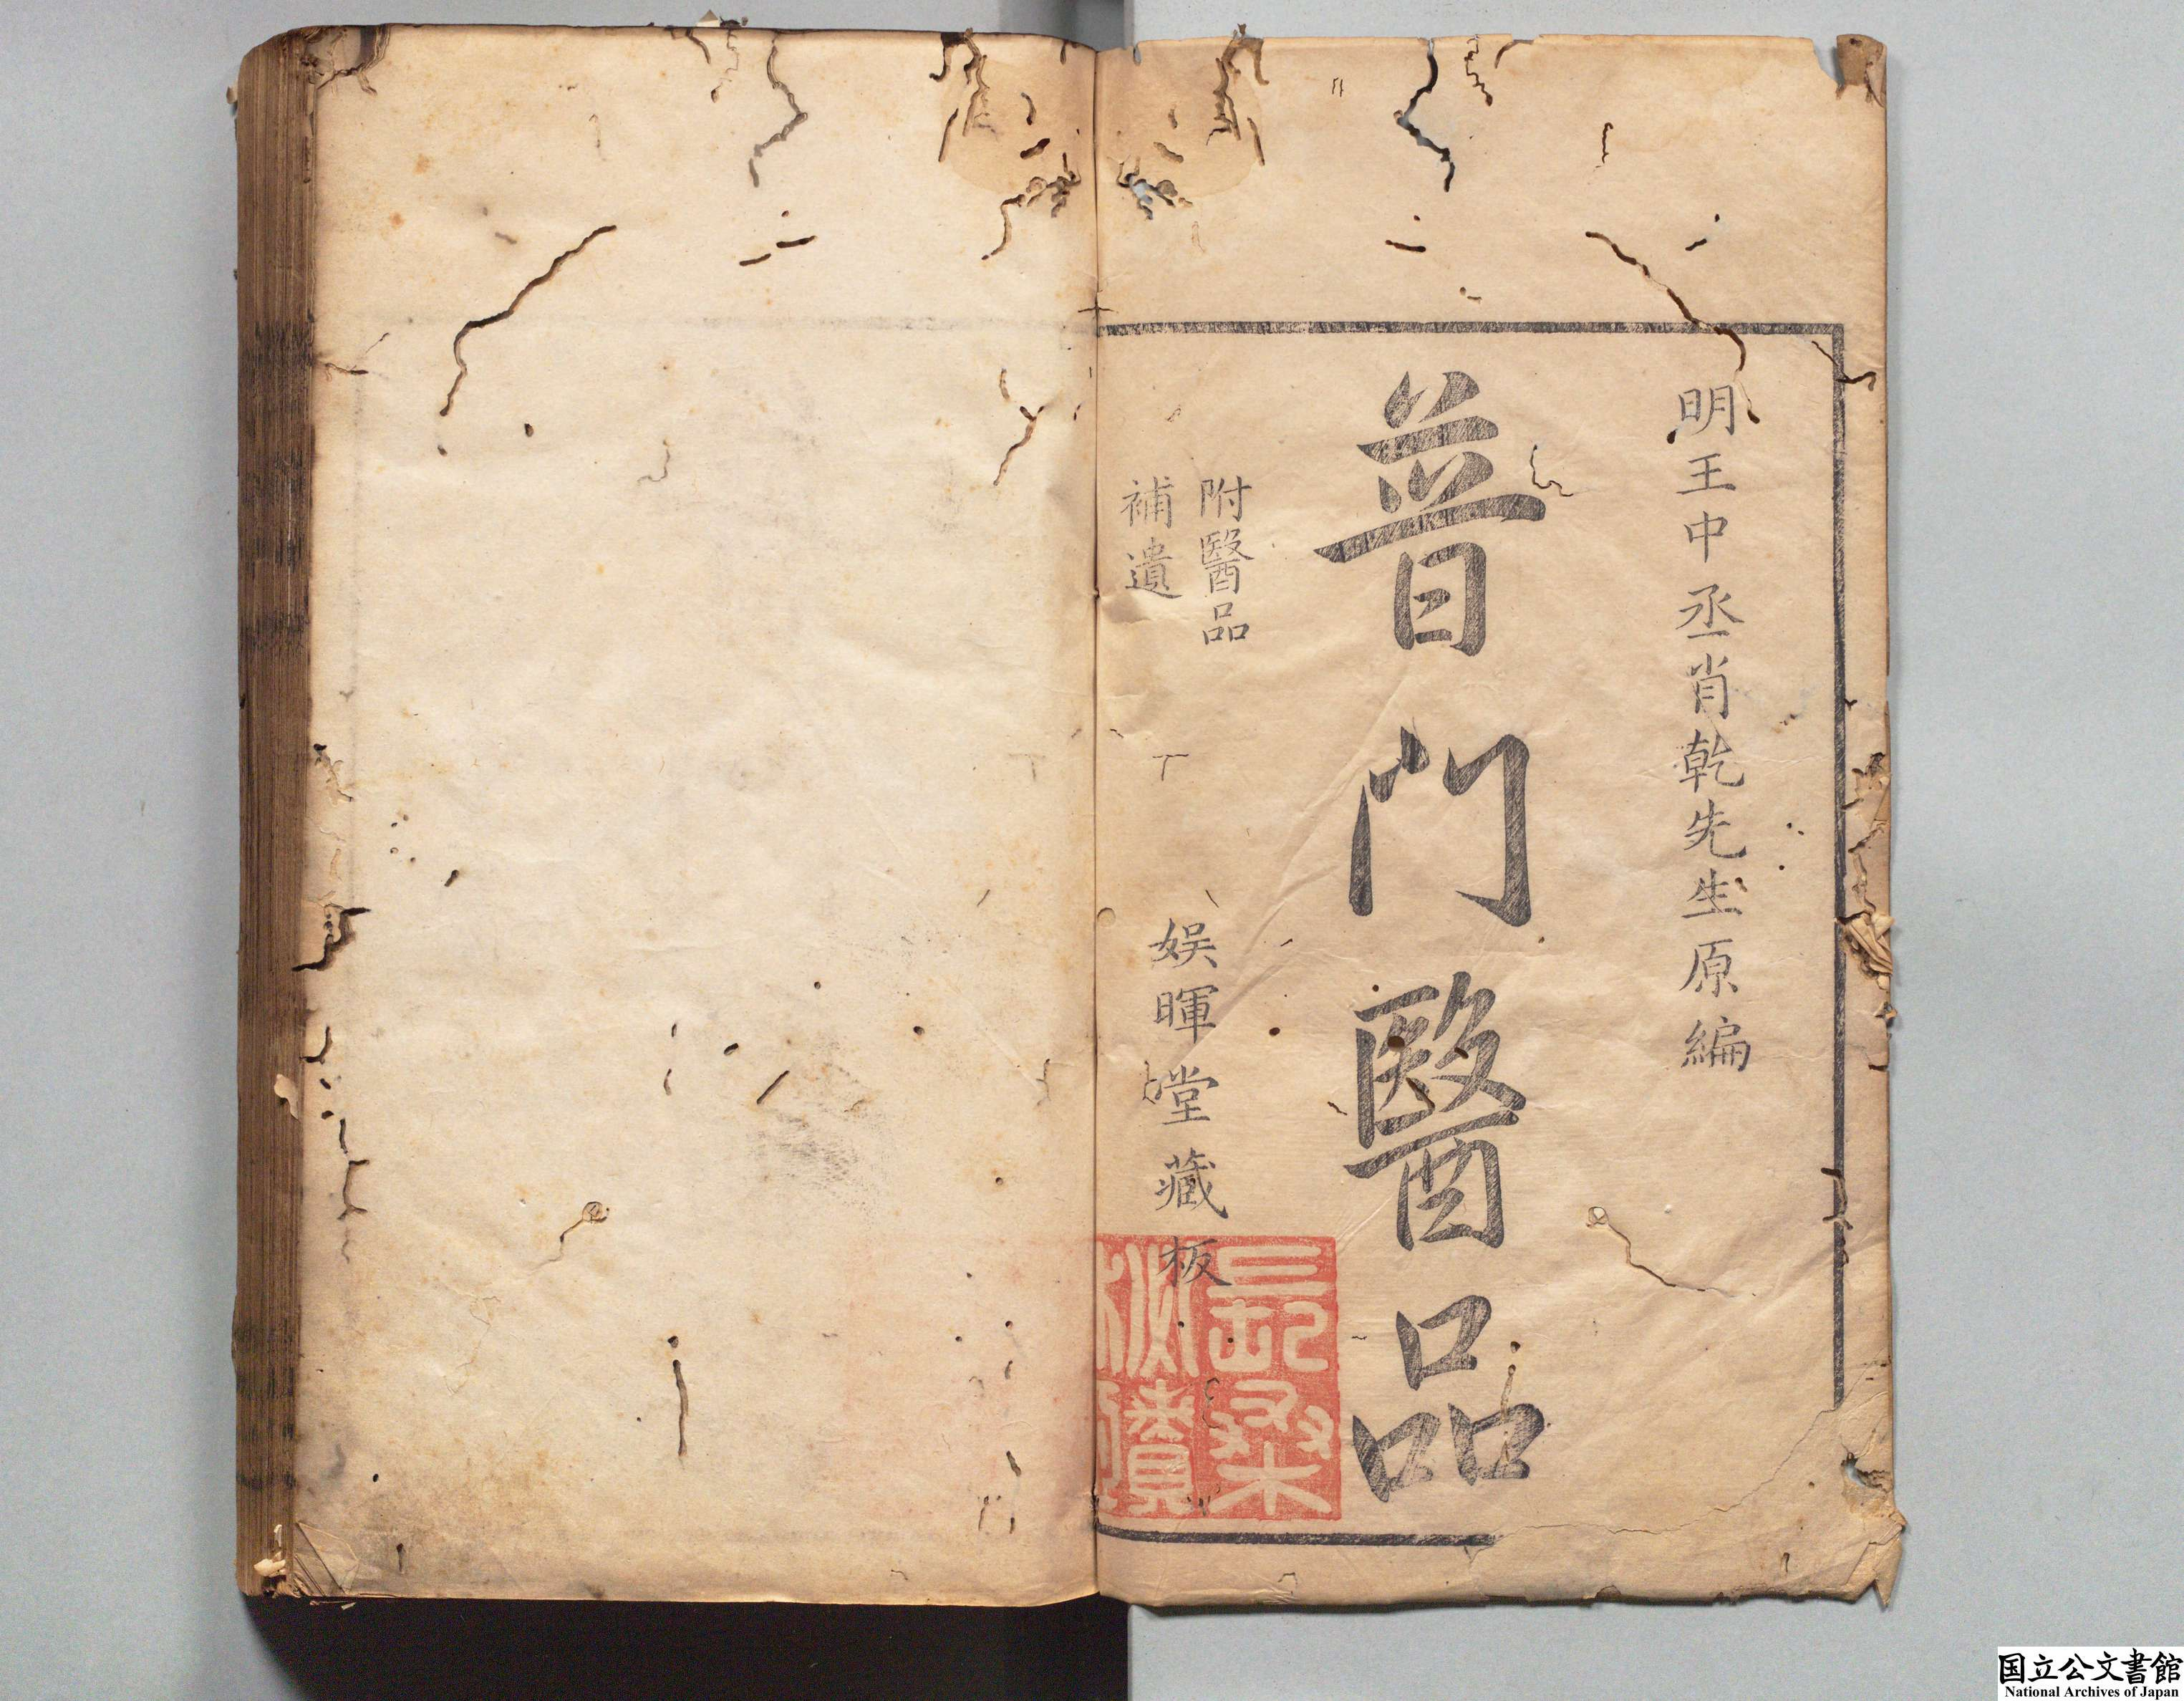 明王中丞肖乾先生原編
普門醫品
附醫品
補遺
娯暉堂藏板
国立公文書館
National Archives of Japan